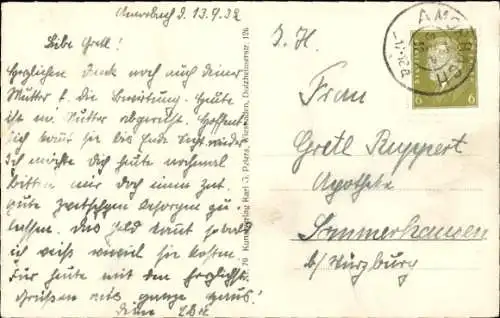 Amorbach d. 13.9.32
Liebe Gretl!
Herzlichen Dank noch auch deiner
Mutter f. die Bewirtung. Heute
ist m. Mutter abgereist. Hoffent
lich kannst sie bis Ende
Ich möchte dich heute nochmal
bitten mir doch einen
gute Zeitschrift besorgen zu
lassen. Das Geld kommt sobald
ich weiß wieviel sie kosten.
Für heute mit den herzlichst
Grüßen ans ganze Haus!
Deine
79 Kunstverlag Karl O. Peters, Wiesbaden, Dotzheimerstr. 126
I. H.
Frau
Gretl Ruppert
Apotheke
Sommerhausen
b/Würzburg
AMORBACH
6 6